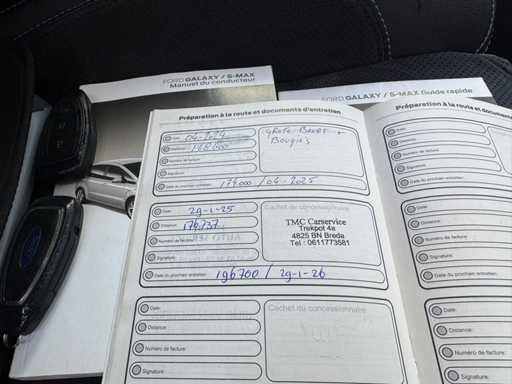 FORD GALAXY / S-MAX
Manuel du conducteur
FORD GALAXY / S-MAX Guide rapide
Préparation à la route et documents d'entretien
Date:
Grote Beurt +
Bougies
Distance:
Numéro de facture:
Signature:
Date du prochain entretien: 177000 / 04-2025
Date: 29-1-25
Distance: 176737
Numéro de facture:
Signature:
Date du prochain entretien: 196700 / 29-1-26
Cachet du concessionnaire
TMC Carservice
Trekpot 4a
4825 BN Breda
Tel : 0611773581
Date:
Distance:
Numéro de facture:
Signature:
Cachet du concessionnaire
Préparation à la route et documents
Date:
Distance:
Numéro de facture:
Signature:
Date du prochain entretien:
Date:
Distance:
Numéro de facture:
Signature:
Date du prochain entretien:
Date:
Distance:
Numéro de facture:
Signature: